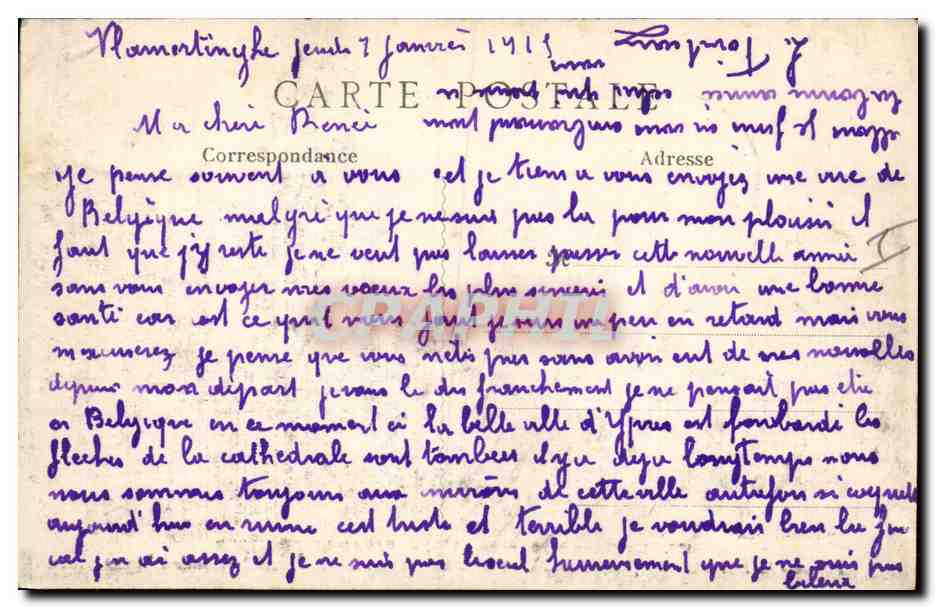 Vlamertinghe jeudi 7 Janvier 1915
CARTE POSTALE
Ma chère Renée
Correspondance
Adresse
Je pense souvent a vous et je tiens a vous envoyez une vue de
Belgique malgré que je ne suis pas la pour mon plaisir il
faut que j'y reste je ne veut pas laisser passer cette nouvelle année
sans vous envoyer mes voeux les plus sincere et d'avoir une bonne
santé car est ce qu'il nous faut je suis un peu en retard mais vous
m'excuserez je pense que vous netes pas sans avoir eut de mes nouvelles
depuis mon départ je vous le dis franchement je ne pensait pas etre
en Belgique en ce moment ci la belle ville d'Ypres est bombardé les
fleches de la cathédrale sont tombees il y a deja longtemps nous
nous sommes toujours aux environs de cette ville autrefois si coquette
aujourd'hui en ruine cest triste et terrible je voudrais bien la fin
car j'en ai assez et je ne suis pas le seul heureusement que je ne suis pas
blessé
CPAPHIL